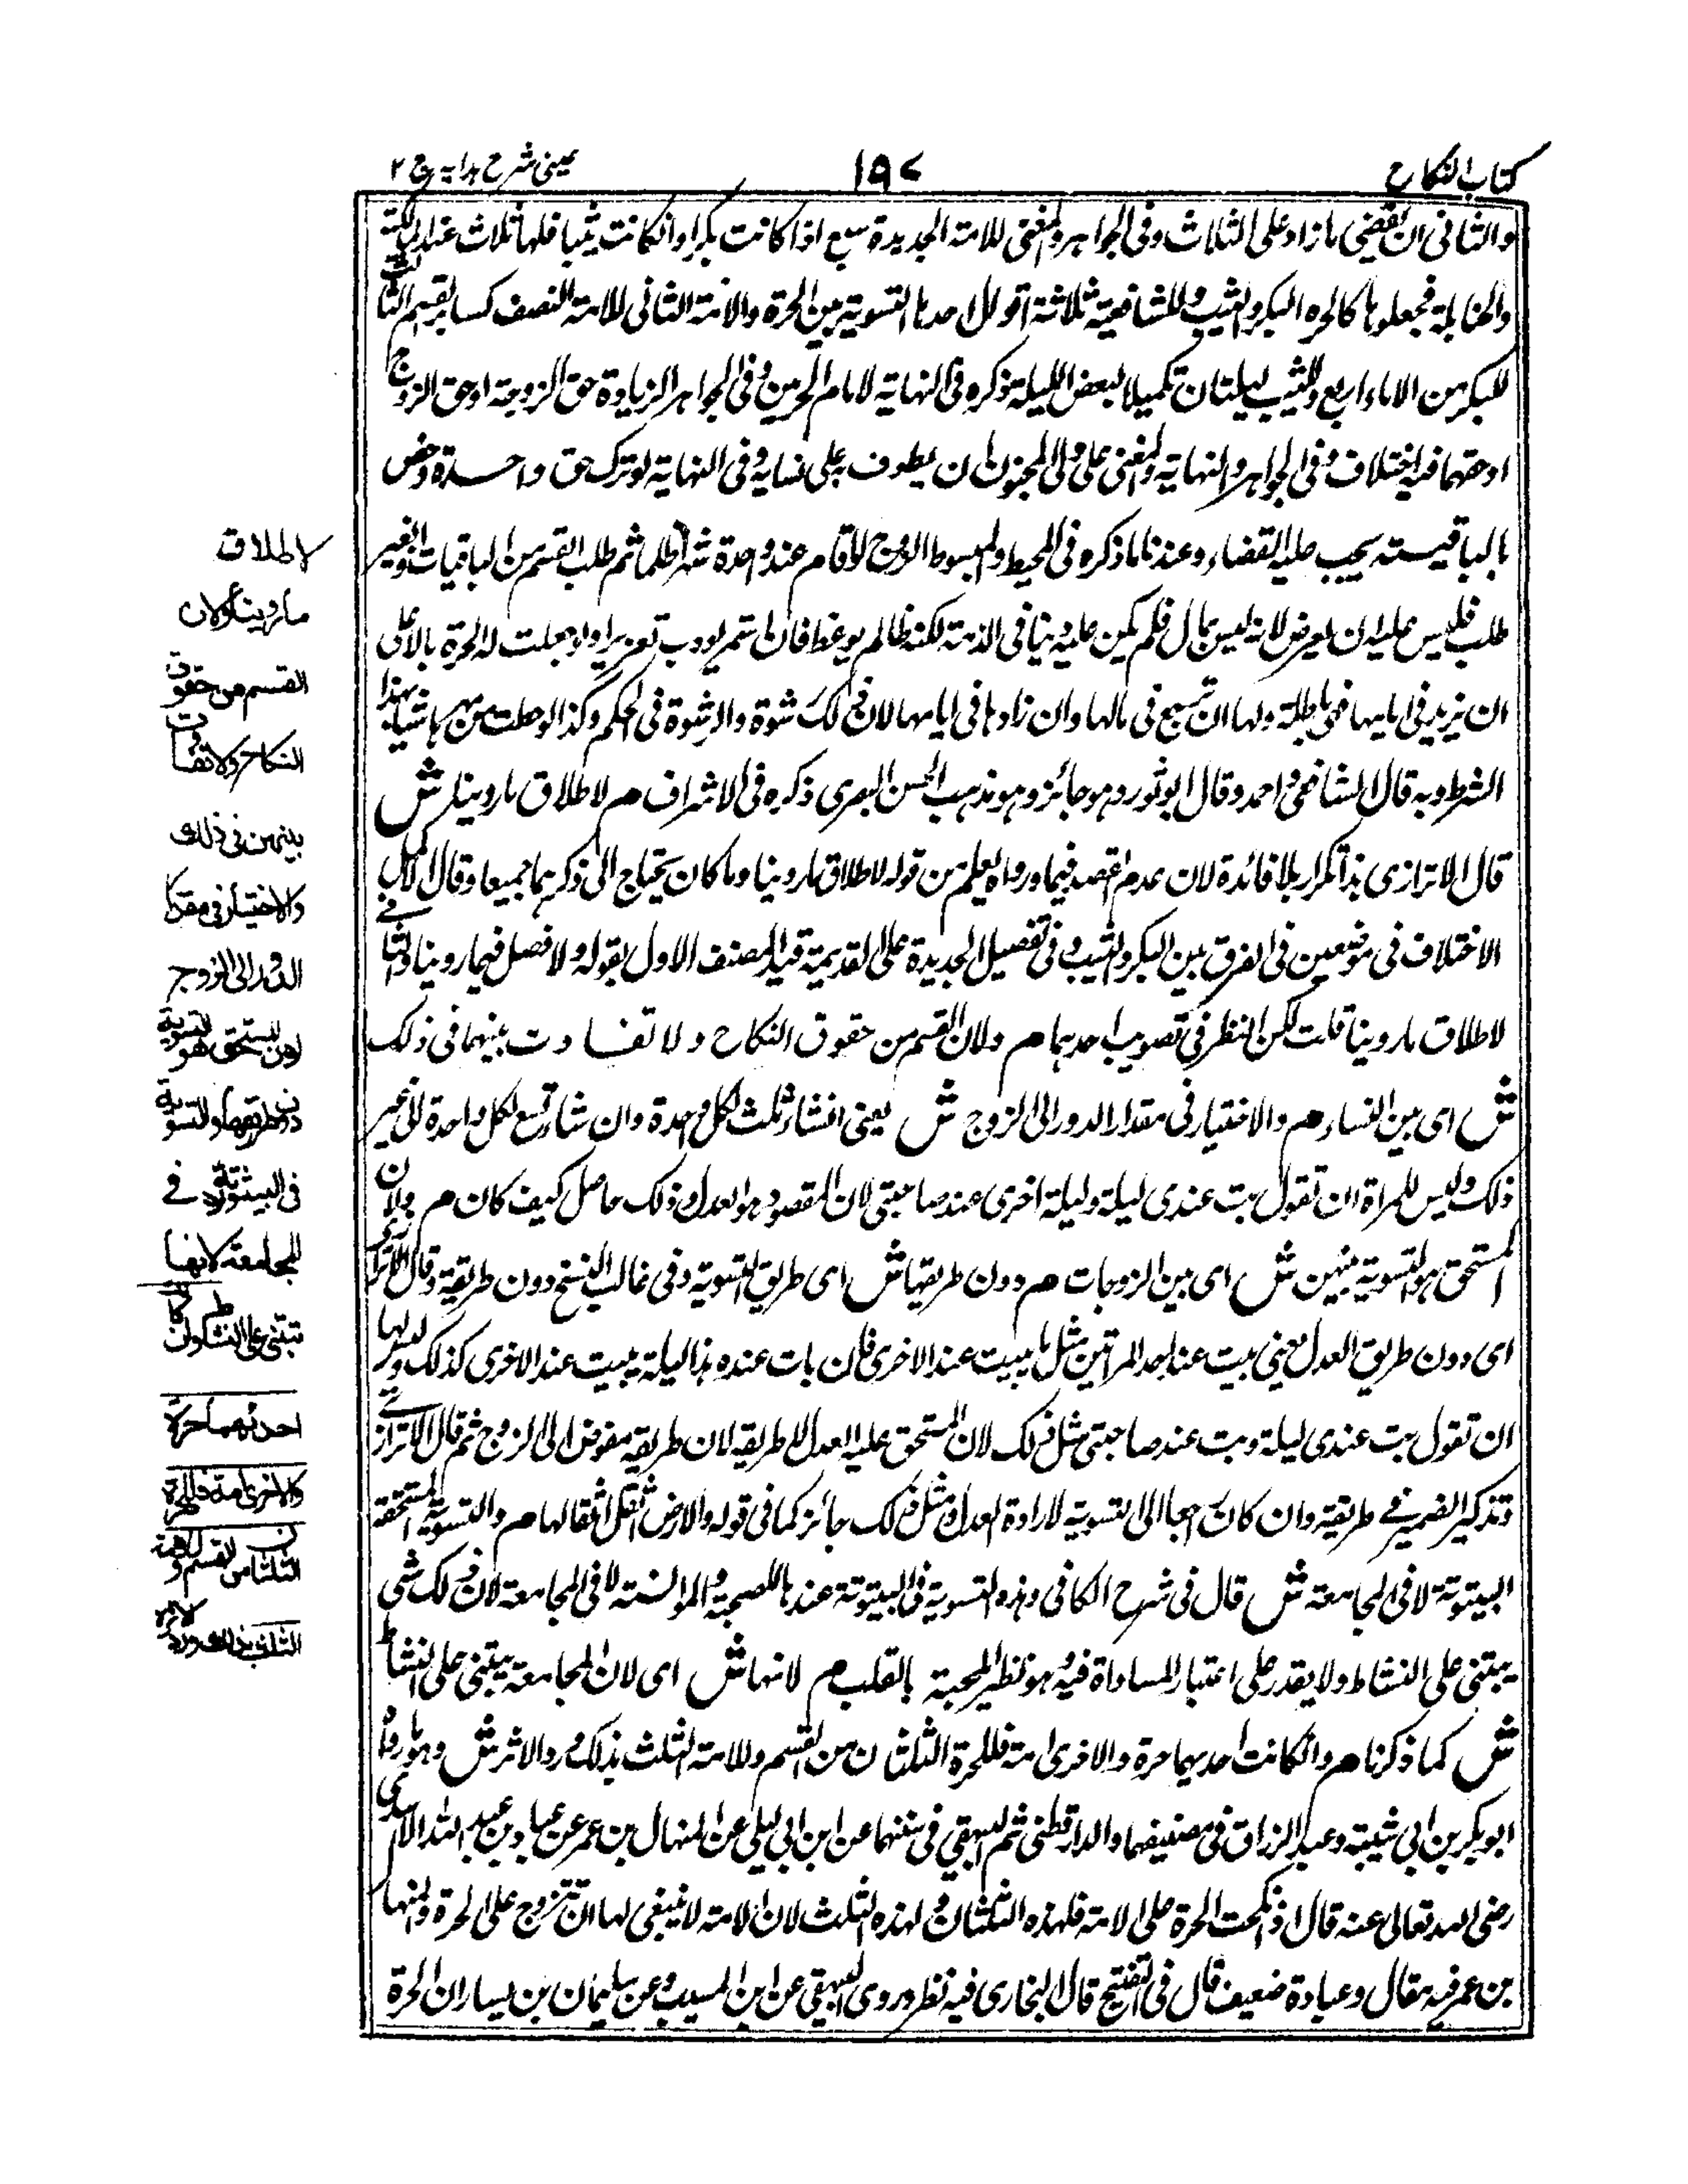 كتاب النكاح
١٩٧
عينى شرح هدايه ج ٢
والثانى ان يقضى ما زاد على الثلاث وفى الجواهر والمغنى للامة الجديدة سبع اذا كانت بكرا وان كانت ثيبا فلها ثلاث عند المالكية
والحنابلة فجعلوها كالحرة البكر والثيب وللشافعية ثلاثة اقوال احدها التسوية بين الحرة والامة الثانى للامة النصف كسائر القسم الثالث
للبكر من الاماء اربع وللثيب ليلتان تكميلا لبعض الليلة ذكره فى النهاية لامام الحرمين وفى الجواهر الزيادة حق الزوجة او حق الزوج
او حقهما فيه اختلاف وفى الجواهر والنهاية والمغنى على ولى المجنون ان يطوف به على نسايه وفى النهاية لو ترك حق واحدة
بالباقية يجب عليه القضاء وعندنا ما ذكره فى المحيط والمبسوط الزوج لو اقام عند واحدة شهرا ظلما ثم طلب القسم من الباقيات او بغير
طلب فليس عليه ان يعوض لانه ليس بمال فلم يكن عليه دينا فى الذمة لكنه ظالم يوعظ فان استمر يؤدب تعزيرا ولو جعلت له الحرة مالا على
ان يزيد فى ايامها فهى باطلة ولها ان ترجع فى مالها وان زادها فى ايامها لان ذلك رشوة والرشوة فى الحكم وكذا لو حطت من مهرها شيئا بهذا
الشرط وبه قال الشافعى واحمد وقال ابو ثور وهو جائز وهو مذهب الحسن البصرى ذكره فى الاشراف م لاطلاق ما روينا ش
قال الاترازى هذا تكرار بلا فائدة لان عدم الفصل فيما رواه يعلم من قوله لاطلاق ما روينا وما كان يحتاج الى ذكرهما جميعا وقال الاكمل
الاختلاف فى موضعين فى الفرق بين البكر والثيب وفى تفضيل الجديدة على القديمة قيد المصنف الاول بقوله ولا فصل فيما روينا والثانى
لاطلاق ما روينا قلت لكن النظر فى تصويب احدهما م ولان القسم من حقوق النكاح ولا تفاوت بينهما فى ذلك
ش اى بين النساء م والاختيار فى مقدار الدور الى الزوج ش يعنى ان شاء ثلث لكل واحدة وان شاء سبع لكل واحدة الى غير
ذلك وليس للمراة ان تقول بت عندى ليلة وليلة اخرى عند صاحبتى لان المقصود هو العدل وذلك حاصل كيف كان م ولان
المستحق هو التسوية بينهن ش اى بين الزوجات م دون طريقها ش اى طريق التسوية وفى غالب النسخ دون طريقه وقال الاترازى
اى دون طريق العدل يعنى يبيت عند احد المراتين مثل ما يبيت عند الاخرى فان بات عند هذه ليلة يبيت عند الاخرى كذلك وليس لها
ان تقول بت عندى ليلة وبت عند صاحبتى مثل ذلك لان المستحق عليه العدل لا طريقه لان طريقه مفوض الى الزوج ثم قال الاترازى
وتذكير الضمير فى طريقه وان كان راجعا الى التسوية لارادة العدل ومثل ذلك جائز كما فى قوله والارض ابقل ابقالها م والتسوية المستحقة
البيتوتة لا فى المجامعة ش قال فى شرح الكافى وهذه التسوية فى البيتوتة عندها للصحبة والموانسة لا فى المجامعة لان ذلك شى
يبتنى على النشاط ولا يقدر على اعتبار المساواة فيه وهو نظير المحبة بالقلب م لانها ش اى لان المجامعة يبتنى على النشاط
ش كما ذكرنا م وان كانت احديهما حرة والاخرى امة فللحرة الثلثان من القسم وللامة الثلث بذلك ورد الاثر ش وهو ما رواه
ابو بكر بن ابى شيبة وعبد الرزاق فى مصنفيهما والدارقطنى ثم البيهقى فى سننهما عن ابن ابى ليلى عن المنهال بن عمر عن عباد بن عبد الله الاسدى
رضى الله تعالى عنه قال اذ نكحت الحرة على الامة فلهذه الثلثان ولهذه الثلث لان الامة لا ينبغى لها ان تتزوج على الحرة والمنهال
بن عمر فيه مقال وعبادة ضعيف قال فى التنقيح قال البخارى فيه نظر وروى البيهقى عن ابن المسيب وعن سليمان بن يسار ان الحرة
لاطلاق
ما روينا ولان
القسم من حقوق
النكاح ولا تفاوت
بينهن فى ذلك
والاختيار فى مقدار
الدور الى الزوج
لان المستحق هو التسوية
دون طريقها والتسوية
فى البيتوتة لا فى
المجامعة لانها
تبتنى على النشاط وان كانت
احدٰهما حرة
والاخرى امة فللحرة
الثلثان من القسم وللامة
الثلث بذلك ورد الاثر